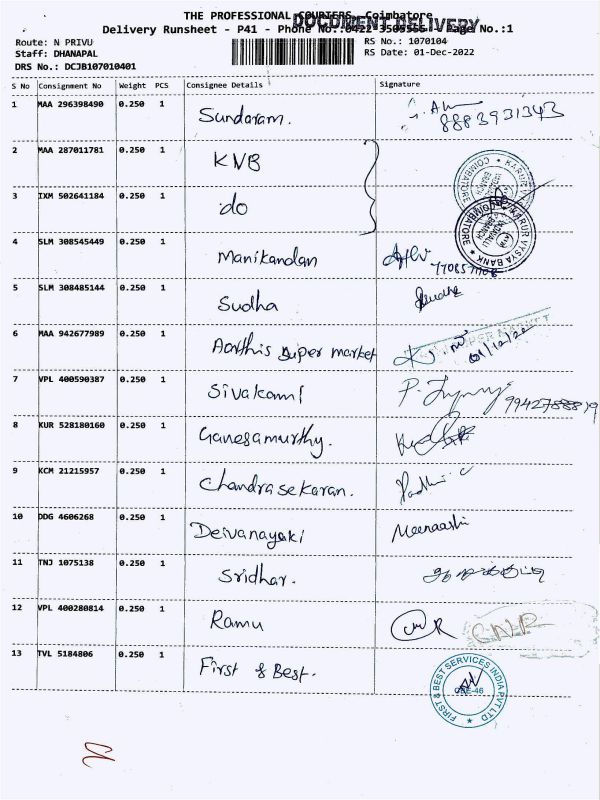 THE PROFESSIONAL COURIERS - Coimbatore
DOCUMENT DELIVERY
Delivery Runsheet - P41 - Phone No.:0422-3505555 - Page No.:1
Route: N PRIVU
RS No.: 1070104
Staff: DHANAPAL
RS Date: 01-Dec-2022
DRS No.: DCJB107010401
S No Consignment No Weight PCS Consignee Details Signature
1 MAA 296398490 0.250 1 Sundaram. 8883931343
2 MAA 287011781 0.250 1 KVB
3 IXM 502641184 0.250 1 do
KARUR VYSYA BANK COIMBATORE
4 SLM 308545449 0.250 1 Manikandan
5 SLM 308485144 0.250 1 Sudha Sudha
6 MAA 942677989 0.250 1 Aarthis super market 01/12/22
SUPER MARKET
7 VPL 400590387 0.250 1 Sivakami
8 KUR 528180160 0.250 1 Ganesamurthy.
9 KCM 21215957 0.250 1 Chandrasekaran. Padhi c
10 DDG 4606268 0.250 1 Deivanayaki Meenaashi
11 TNJ 1075138 0.250 1 Sridhar.
12 VPL 400280814 0.250 1 Ramu
13 TVL 5184806 0.250 1 First & Best.
FIRST & BEST SERVICES INDIA PVT LTD
CBE-46